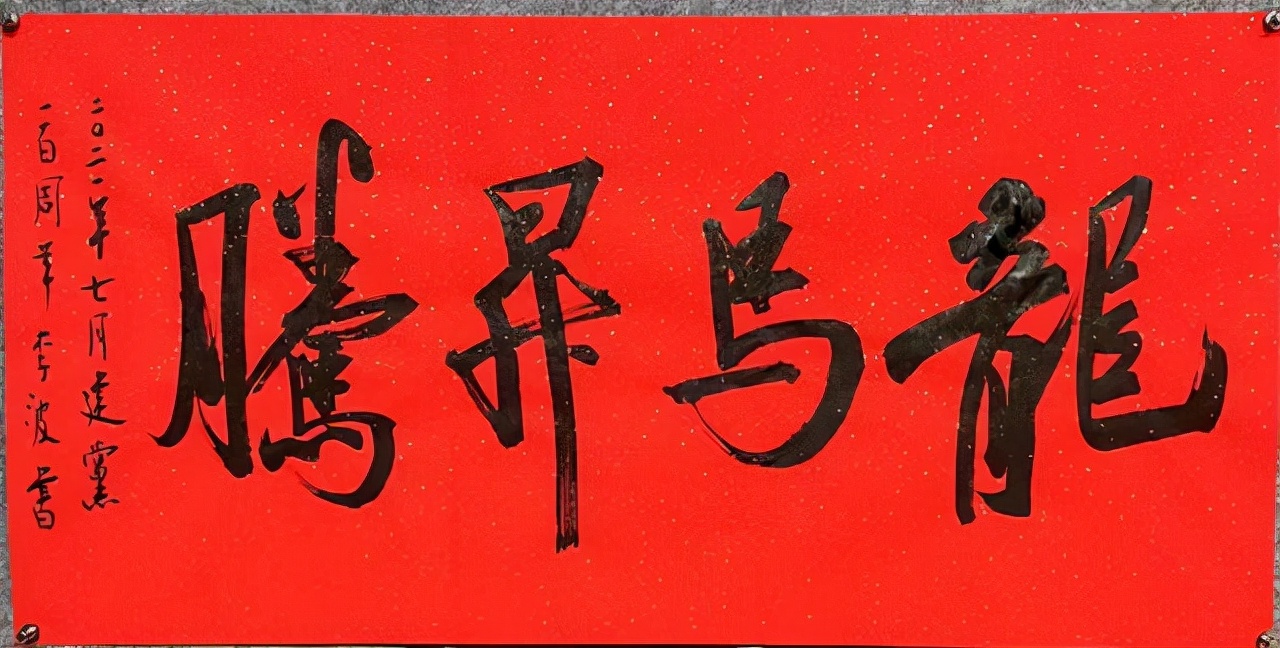 龍馬昇騰
二〇二一年七月建黨
一百周年李波書